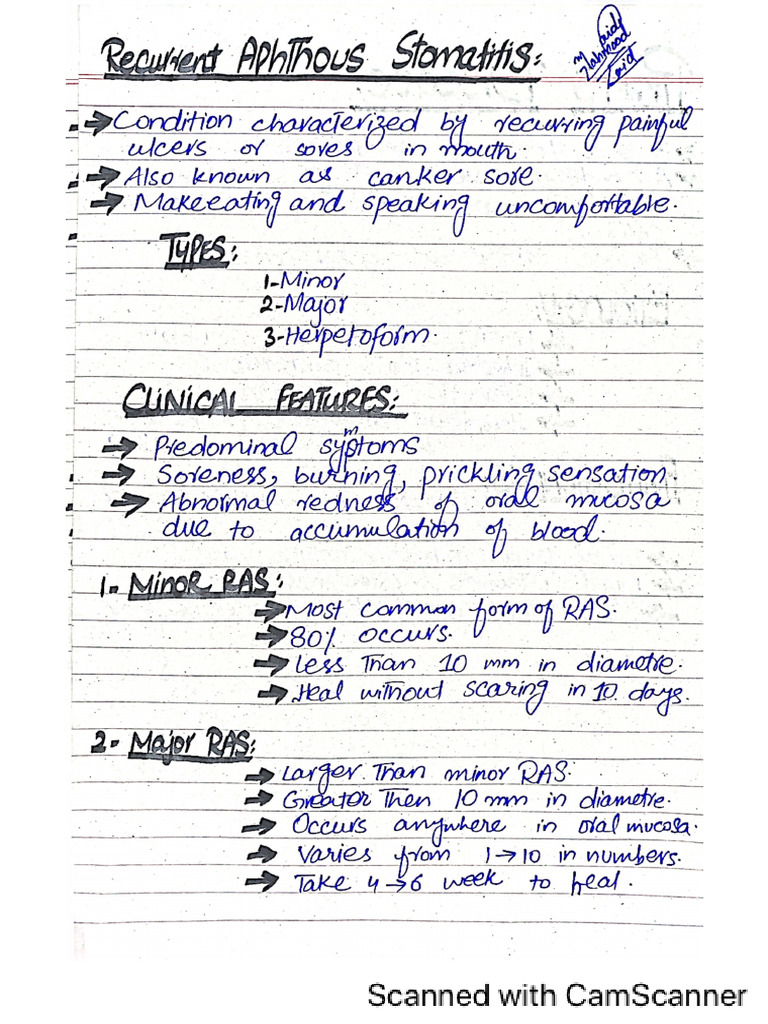 Recurrent Aphthous Stomatitis:
→ Condition characterized by recurring painful
ulcers or sores in mouth.
→ Also known as canker sore.
→ Make eating and speaking uncomfortable.
Types:
1-Minor
2-Major
3-Herpetoform.
Clinical Features:
→ Predominal symptoms
→ Soreness, burning, prickling sensation.
→ Abnormal redness of oral mucosa
due to accumulation of blood.
1- Minor RAS:
→ Most common form of RAS.
→ 80% occurs.
→ Less Than 10 mm in diametre.
→ Heal without scaring in 10 days.
2- Major RAS:
→ Larger Than minor RAS.
→ Greater Then 10 mm in diametre.
→ Occurs anywhere in oral mucosa.
→ Varies from 1→10 in numbers.
→ Take 4→6 week to heal.
Scanned with CamScanner